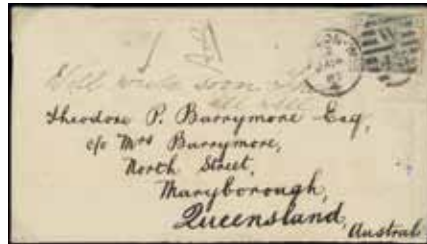 Will write soon
all well
Theodore P. Barrymore Esq,
c/o Mrs Barrymore,
North Street,
Maryborough,
Queensland,
Austral